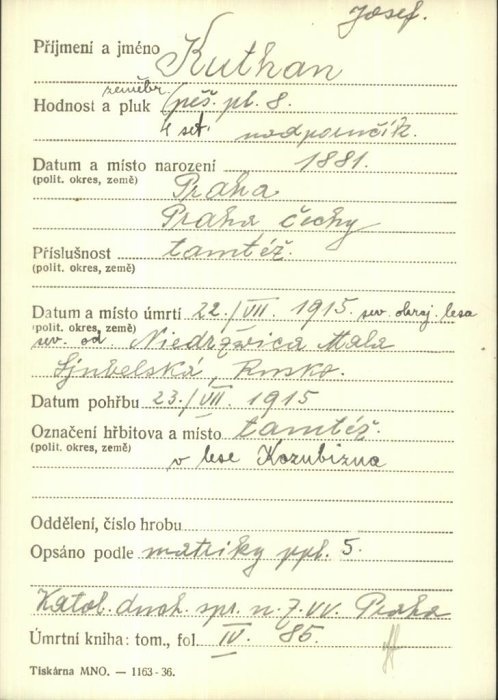 Josef.
Příjmení a jméno Kuthan
zeměbr.
Hodnost a pluk (pěš. pl. 8.
4 set. nadporučík.
Datum a místo narození 1881.
(polit. okres, země) Praha
Praha Čechy
Příslušnost tamtéž.
(polit. okres, země)
Datum a místo úmrtí 22./VII. 1915 sev. okraj. lesa
(polit. okres, země)
sev. od Niedrzwica Mala
Ljubelská, Rusko.
Datum pohřbu 23./VII. 1915
Označení hřbitova a místo tamtéž.
(polit. okres, země) v lese Kozubizna
Oddělení, číslo hrobu
Opsáno podle matriky ppl. 5.
Katol. duch. spr. n 7. VV. Praha
Úmrtní kniha: tom., fol. IV. 85.
Tiskárna MNO. — 1163-36.